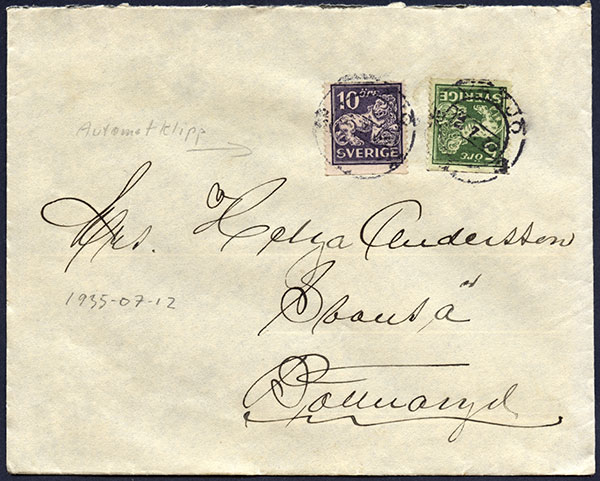 10 öre
SVERIGE
SVERIGE
ÖRE
Automatklipp
Mrs. Helga Andersson
1935-07-12
Bottnaryd